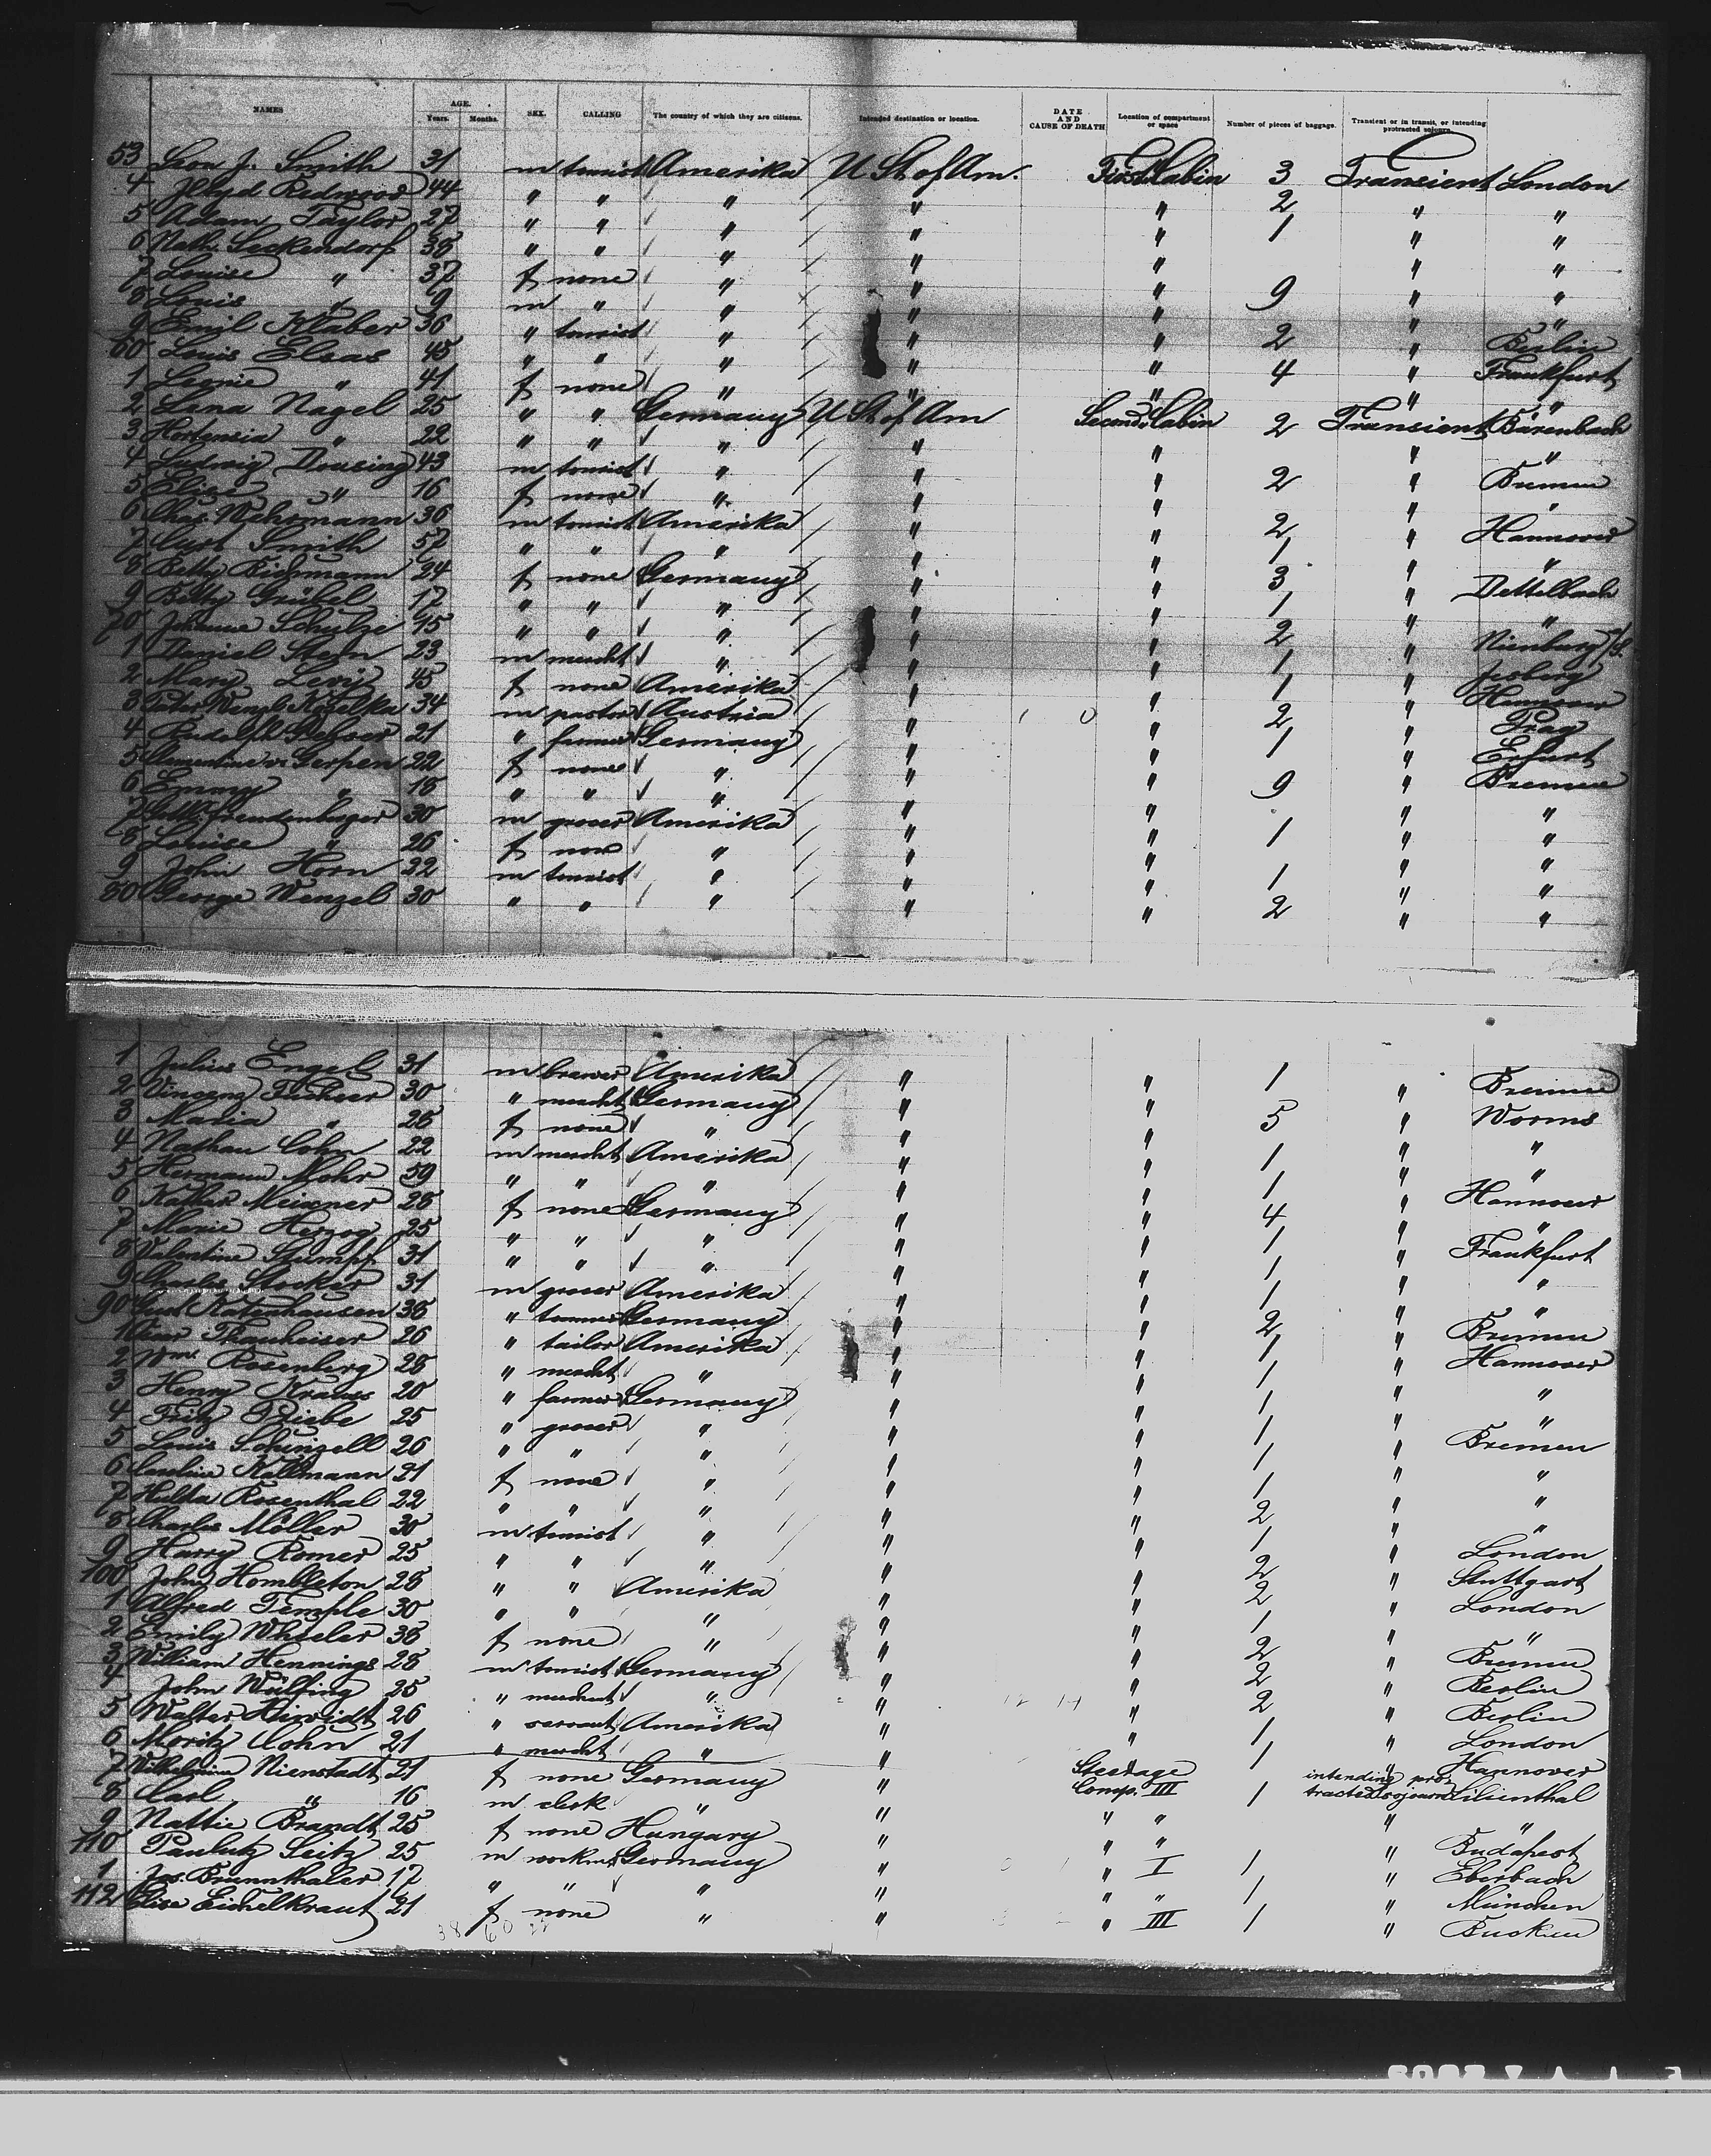 NAMES AGE. Years. Months. SEX. CALLING The country of which they are citizens. Intended destination or location. DATE AND CAUSE OF DEATH Location of compartment or space Number of pieces of baggage. Transient or in transit, or intending protracted sojourn
53 Leon J. Smith 31 m tourist Amerika U St. of Am. First Cabin 3 Transient London
4 Redwood 44 " " " " " 2 " "
5 Adam Taylor 27 " " " " " 1 " "
6 Nath. Seckendorf 38 " " " " " " "
7 Louise " 37 f none " " " 9 " "
8 Louis " 9 m " " " " " "
9 Emil Klaber 36 " tourist " " " 2 " Berlin
60 Louis Elsas 45 " " " " " 4 " Frankfurt
1 Leonie " 41 f none " " " " "
2 Lina Nagel 25 " " Germany U St. of Am Second Cabin 2 Transient Bärenbach
3 Hortensia " 22 " " " " " " "
4 Ludwig Dousing 43 m tourist " " " 2 " Bremen
5 Elise " 16 f none " " " " "
6 Chas. Wehrmann 36 m tourist Amerika " " 2 " Hannover
7 Curt Smith 57 " " " " " 1 " "
8 Betty Richmann 24 f none Germany " " 3 " Dettelbach
9 Betty Grübel 17 " " " " " 1 " "
70 Johanne Schulze " " " " " 2 " Nienburg
1 Daniel Stern 23 m mercht " " " 1 " Jesberg
2 Mary Levi 45 f none Amerika " " 1 " Hannover
3 Peter Wenzl Koselka 34 m pastor Austria " " 2 " Prag
4 Rudolf 21 " farmer Germany " " 1 " Erfurt
5 Clementine v. Gerpen 22 f none " " " 9 " Bremen
6 Emmy " 18 " " " " " " "
7 Gottl. Freudenburger 30 m grocer Amerika " " 1 " "
8 Louise " 26 f none " " " " "
9 John Horn 22 m tourist " " " 1 " "
80 George Wenzel 30 " " " " " 2 " "
1 Julius Engel 31 m brewer Amerika " " 1 " Bremen
2 Vincenz Fischer 30 " mercht Germany " " 5 " Worms
3 Maria " 26 f none " " " " "
4 Nathan Cohn 22 m mercht Amerika " " 1 " "
5 Hermann Mohr 59 " " " " " 1 " Hannover
6 Käthe Meissner 28 f none Germany " " 4 " "
7 Marie Herzog 25 " " " " " 1 " Frankfurt
8 Valentine Stumpf 31 " " " " " 1 " "
9 Charles Stocker 31 m grocer Amerika " " 1 " "
90 Gust. Katenhausen 38 " Germany " " 2 " Bremen
1 Thanheiser 26 " tailor Amerika " " 1 " Hannover
2 Wm. Rosenberg 28 " mercht " " " 1 " "
3 Henry Krauss 20 " farmer Germany " " 1 " "
4 Fritz Priebe 25 " grocer " " " 1 " Bremen
5 Louis Schinzell 26 " " " " " 1 " "
6 Caroline Kallmann 21 f none " " " 1 " "
7 Hulda Rosenthal 22 " " " " " 2 " "
8 Charles Möller 30 m tourist " " " 1 " London
9 Harry Romer 25 " " " " " 2 " Stuttgart
100 John Hombleton 28 " " Amerika " " 2 " London
1 Alfred Temple 30 " " " " " 1 " "
2 Emily Wheeler 38 f none " " " 2 " Bremen
3 William Hennings 28 m tourist Germany " " 2 " Berlin
4 John Wülfing 25 " merchant " " " 2 " Berlin
5 Walter 26 " servant Amerika " " 1 " London
6 Moritz Cohn 21 " mercht " " 1 " Hannover
7 Wilhelmine Nienstadt 21 f none Germany " Steerage Comp. III 1 intending protracted sojourn Lilienthal
8 Carl " 16 m clerk " " " " " "
9 Nattie Brandt 25 f none Hungary " " " " Budapest
110 Seitz 25 m workm. Germany " " I 1 " Eberbach
1 Jos. Brunnthaler 17 " " " " " " 1 " München
112 Elise Eichelkraut 21 f none " " " III 1 "